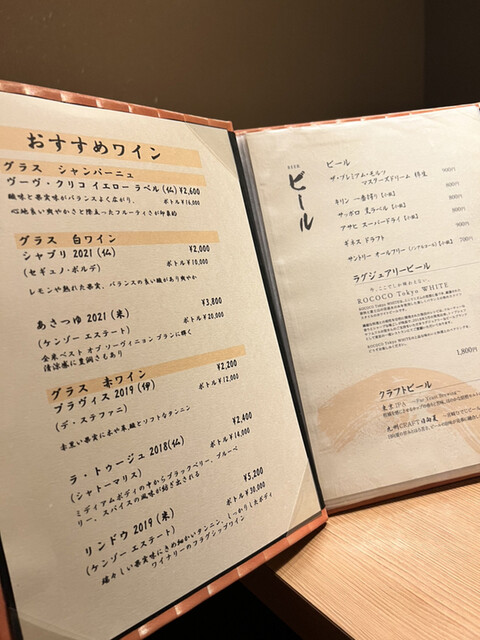 おすすめワイン
グラス シャンパーニュ
ヴーヴ・クリコ イエロー ラベル (仏) ¥2,600
酸味と果実味がバランスよく広がり、 ボトル¥16,000
心地良い爽やかさと際立ったフルーティさが印象的
グラス 白ワイン
シャブリ 2021 (仏) ¥2,000
(セギュノ・ボルデ) ボトル¥10,000
レモンや熟れた果実、バランスの良い酸があり爽やか
あさつゆ 2021 (米) ¥3,800
(ケンゾー エステート) ボトル¥20,000
全米ベスト オブ ソーヴィニョン ブランに輝く
清涼感に豊潤さもあり
グラス 赤ワイン
プラヴィス 2019 (伊) ¥2,200
(デ・ステファニ) ボトル¥12,000
赤黒い果実に木や革酸とソフトなタンニン
ラ・トゥージュ 2018 (仏) ¥2,400
(シャトーマリス) ボトル¥14,000
ミディアムボディの中からブラックベリー、ブルーベ
リー、スパイスの風味が紡ぎ出される
リンドウ 2019 (米) ¥5,200
(ケンゾー エステート) ボトル¥30,000
瑞々しい果実味にきめ細かいタンニン、しっかりしたボディ
ワイナリーのフラグシップワイン
BEER
ビール
ビール
ザ・プレミアム・モルツ
マスターズドリーム 樽生 900円
キリン 一番搾り【小瓶】 800円
サッポロ 黒ラベル【小瓶】 800円
アサヒ スーパードライ【小瓶】
ギネス ドラフト
サントリー オールフリー (ノンアルコール)【小瓶】 700円
ラグジュアリービール
今、ここでしか味わえない。
ROCOCO Tokyo WHITE
1,800円
クラフトビール
東京IPA ～Far Yeast Brewing～
九州CRAFT日向夏